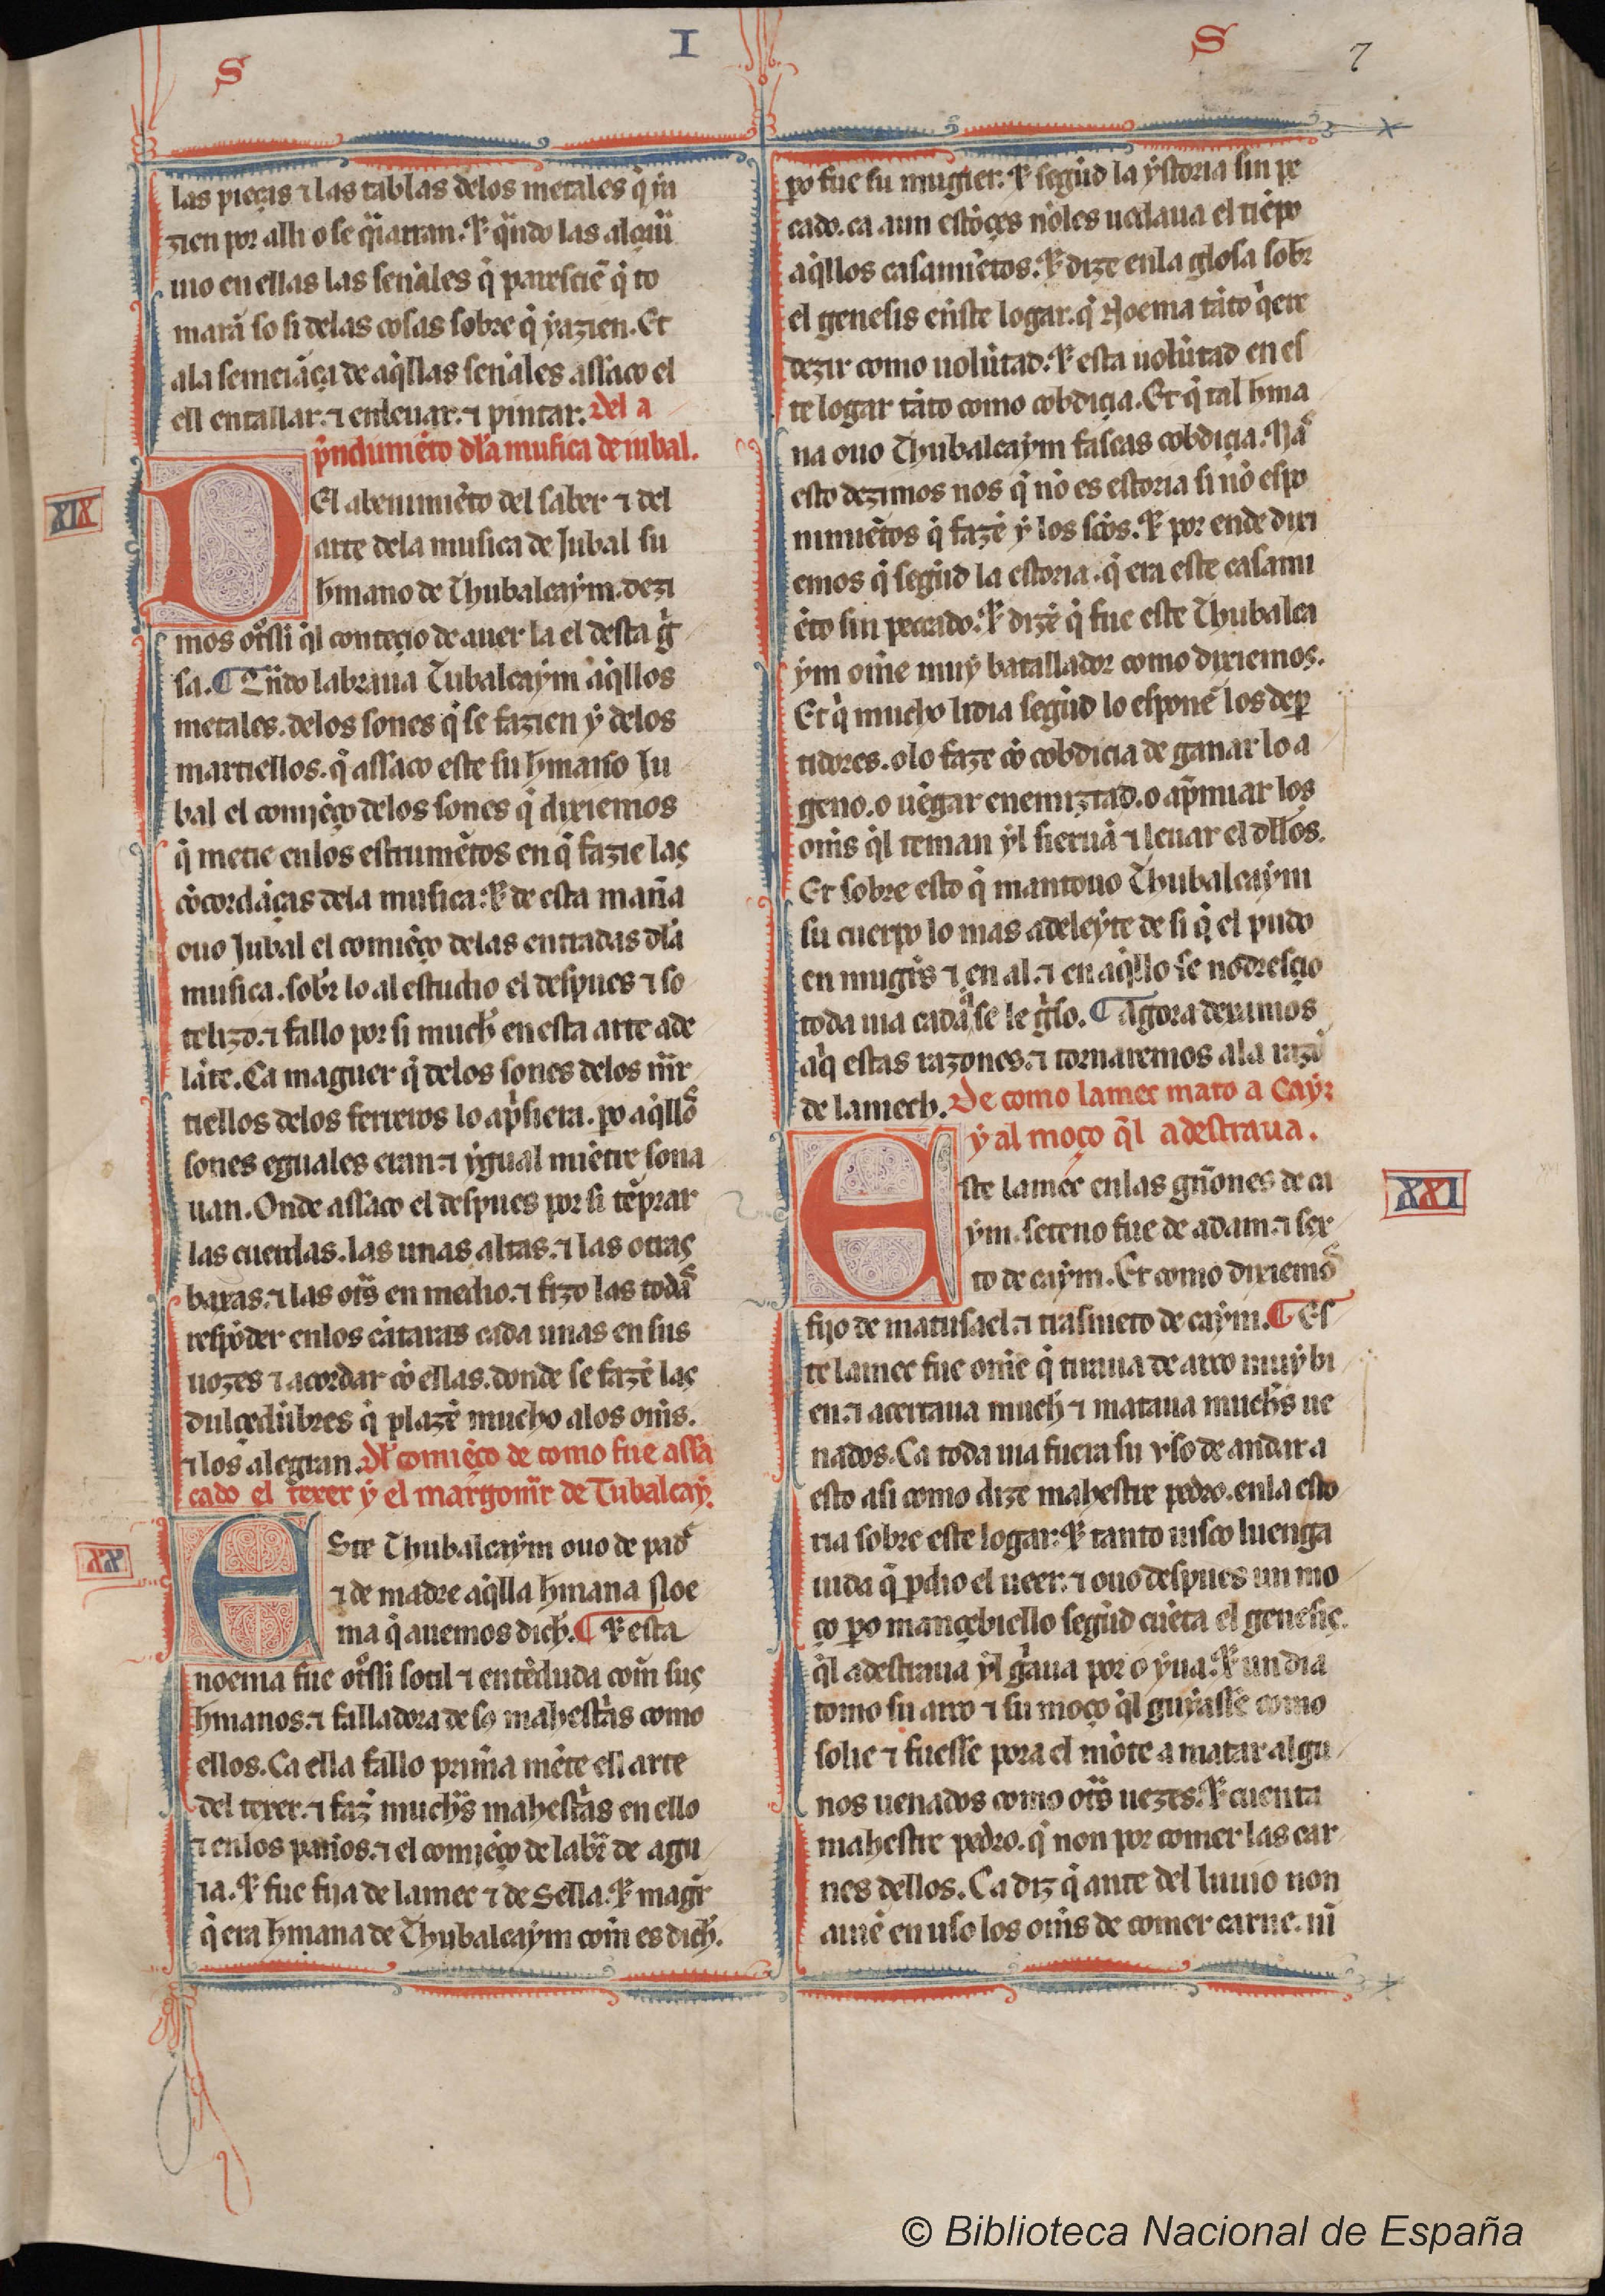 S I S 7
las pieças ⁊ las tablas delos metales q̇ ya
zien por alli o se q̈iarran. ⁊ q̈ndo las alçaũ
uio en ellas las señales q̇ paresciẽ q̇ to
marã so si delas cosas sobre q̇ yazien. Et
ala semeiãça de aq̇llas señales assaco el
ell entallar. ⁊ enleuar. ⁊ pintar. Del a
p̃ndimiẽto dla musica de iubal.
XIX
DEl abenimiẽto del saber ⁊ del
arte dela musica de Jubal su
h̃mano de Thubalcaym. dezi
mos ot̊ssi q̇l conteçio de auer la el desta g̊
sa. ¶ Qñdo labraua Tubalcaym aq̇llos
metales. delos sones q̇ se fazien y delos
martiellos. q̇ assaco este su h̃mano Ju
bal el comieço delos sones q̇ dixiemos
q̇ metie enlos estrumẽtos en q̇ fazie las
cõcordãças dela musica. ⁊ de esta mañã
ouo Jubal el comiẽço delas entradas dla
musica. sobr̃ lo al estudio el despues ⁊ so
telizo. ⁊ fallo por si much̃ en esta arte ade
lãte. Ca maguer q̇ delos sones delos mr̃
tiellos delos ferreros lo ap̃siera. po aq̇llos
sones eguales eran. ⁊ ygual miẽtre sona
uan. Onde assaco el despues por si tẽprar
las cuerdas. las unas altas. ⁊ las otras
baxas. ⁊ las ot̃s en medio. ⁊ fizo las todas
respõder enlos cãtares cada unas en sus
uozes ⁊ acordar cõ ellas. donde se fazẽ las
dulçedũbres q̇ plazẽ mucho alos om̃s.
⁊ los alegran. Dl comiẽço de como fue assa
cado el texer y el margomr̃ de Tubalcay.
XX
ESte Thubalcaym ouo de pad̃
⁊ de madre aq̇lla h̃mana Noe
ma q̇ auemos dich̃. ¶ ⁊ esta
noema fue ot̊ssi sotil ⁊ entẽduda com̃ sus
h̃manos. ⁊ falladora de so mahest̃as como
ellos. Ca ella fallo prim̃a mẽte ell arte
del texer. ⁊ faz̃ much̃s mahest̃as en ello
⁊ enlos paños. ⁊ el comieço de labr̃ de agu
ia. ⁊ fue fija de lamec ⁊ de Sella. ⁊ mag̃r
q̇ era h̃mana de Thubalcaym com̃ es dich̃.
po fue su mugier. ⁊ segũd la ystoria sin pe
cado. ca aun estõçes nõ les uedaua el tiẽpo
aq̇llos casamiẽtos. ⁊ dize enla glosa sobr̃
el genesis enste logar. q̇ Noema tãto q̇ere
dezir como uolũtad. ⁊ esta uolũtad en es
te logar tãto como cobdiçia. Et q̇ tal h̃ma
na ouo Thubalcaym fascas cobdiçia. Mas
esto dezimos nos q̇ nõ es estoria si nõ espo
nimiẽtos q̇ fazẽ y los sc̃os. ⁊ por ende diri
emos q̇ segũd la estoria. q̇ era este casami
ẽto sin peccado. ⁊ dizẽ q̇ fue este Thubalca
ym om̃e muy batallador como dixiemos.
Et q̇ mucho lidia segũd lo esponẽ los dep
tidores. o lo faze cõ cobdicia de ganar lo a
geno. o uẽgar enemiztad. o ap̃miar los
om̃s q̇l teman yl sieruã ⁊ leuar el dllos.
Et sobre esto q̇ mantouo Thubalcaym
su cuerpo lo mas adeleyte de si q̇ el pudo
en mugis ⁊ en al. ⁊ en aq̇llo se nodresçio
toda uia cada q̇ se le g̊so. ¶ Agora dexamos
aq̇ estas razones. ⁊ tornaremos ala razõ
de lamech. De como lamec mato a Cay
y al moço q̃l adestraua.
XXI
Este lamec enlas gñones de ca
ym. seteno fue de adam. ⁊ sex
to de caym. Et como dixiemos
fijo de matusael. ⁊ trasnieto de caym. ¶ Es
te lamec fue om̃e q̇ tiraua de arco muy bi
en. ⁊ acertaua much̃ ⁊ mataua much̃s ue
nados. Ca toda uia fuera su uso de andar a
esto asi como dize mahestre pedro. enla esto
ria sobre este logar. ⁊ tanto uisco luenga
uida q̇ pdio el ueer. ⁊ ouo despues un mo
ço po mançebiello segũd cuẽta el genesis.
q̇l adestraua yl g̊aua por o yua. ⁊ un dia
tomo su arco ⁊ su moço q̇l guyasse como
solie ⁊ fuesse pora el mõte a matar algu
nos uenados como ot̃s uezes. ⁊ cuenta
mahestre pedro. q̇ non por comer las car
nes dellos. Ca diz q̇ ante del luuio non
auiẽ en uso los om̃s de comer carne. ni
© Biblioteca Nacional de España